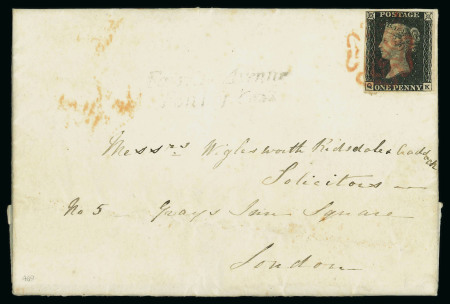 POSTAGE
ONE PENNY
Messrs Wiglesworth Ridsdale &
Solicitors
No 5 Grays Inn Square
London